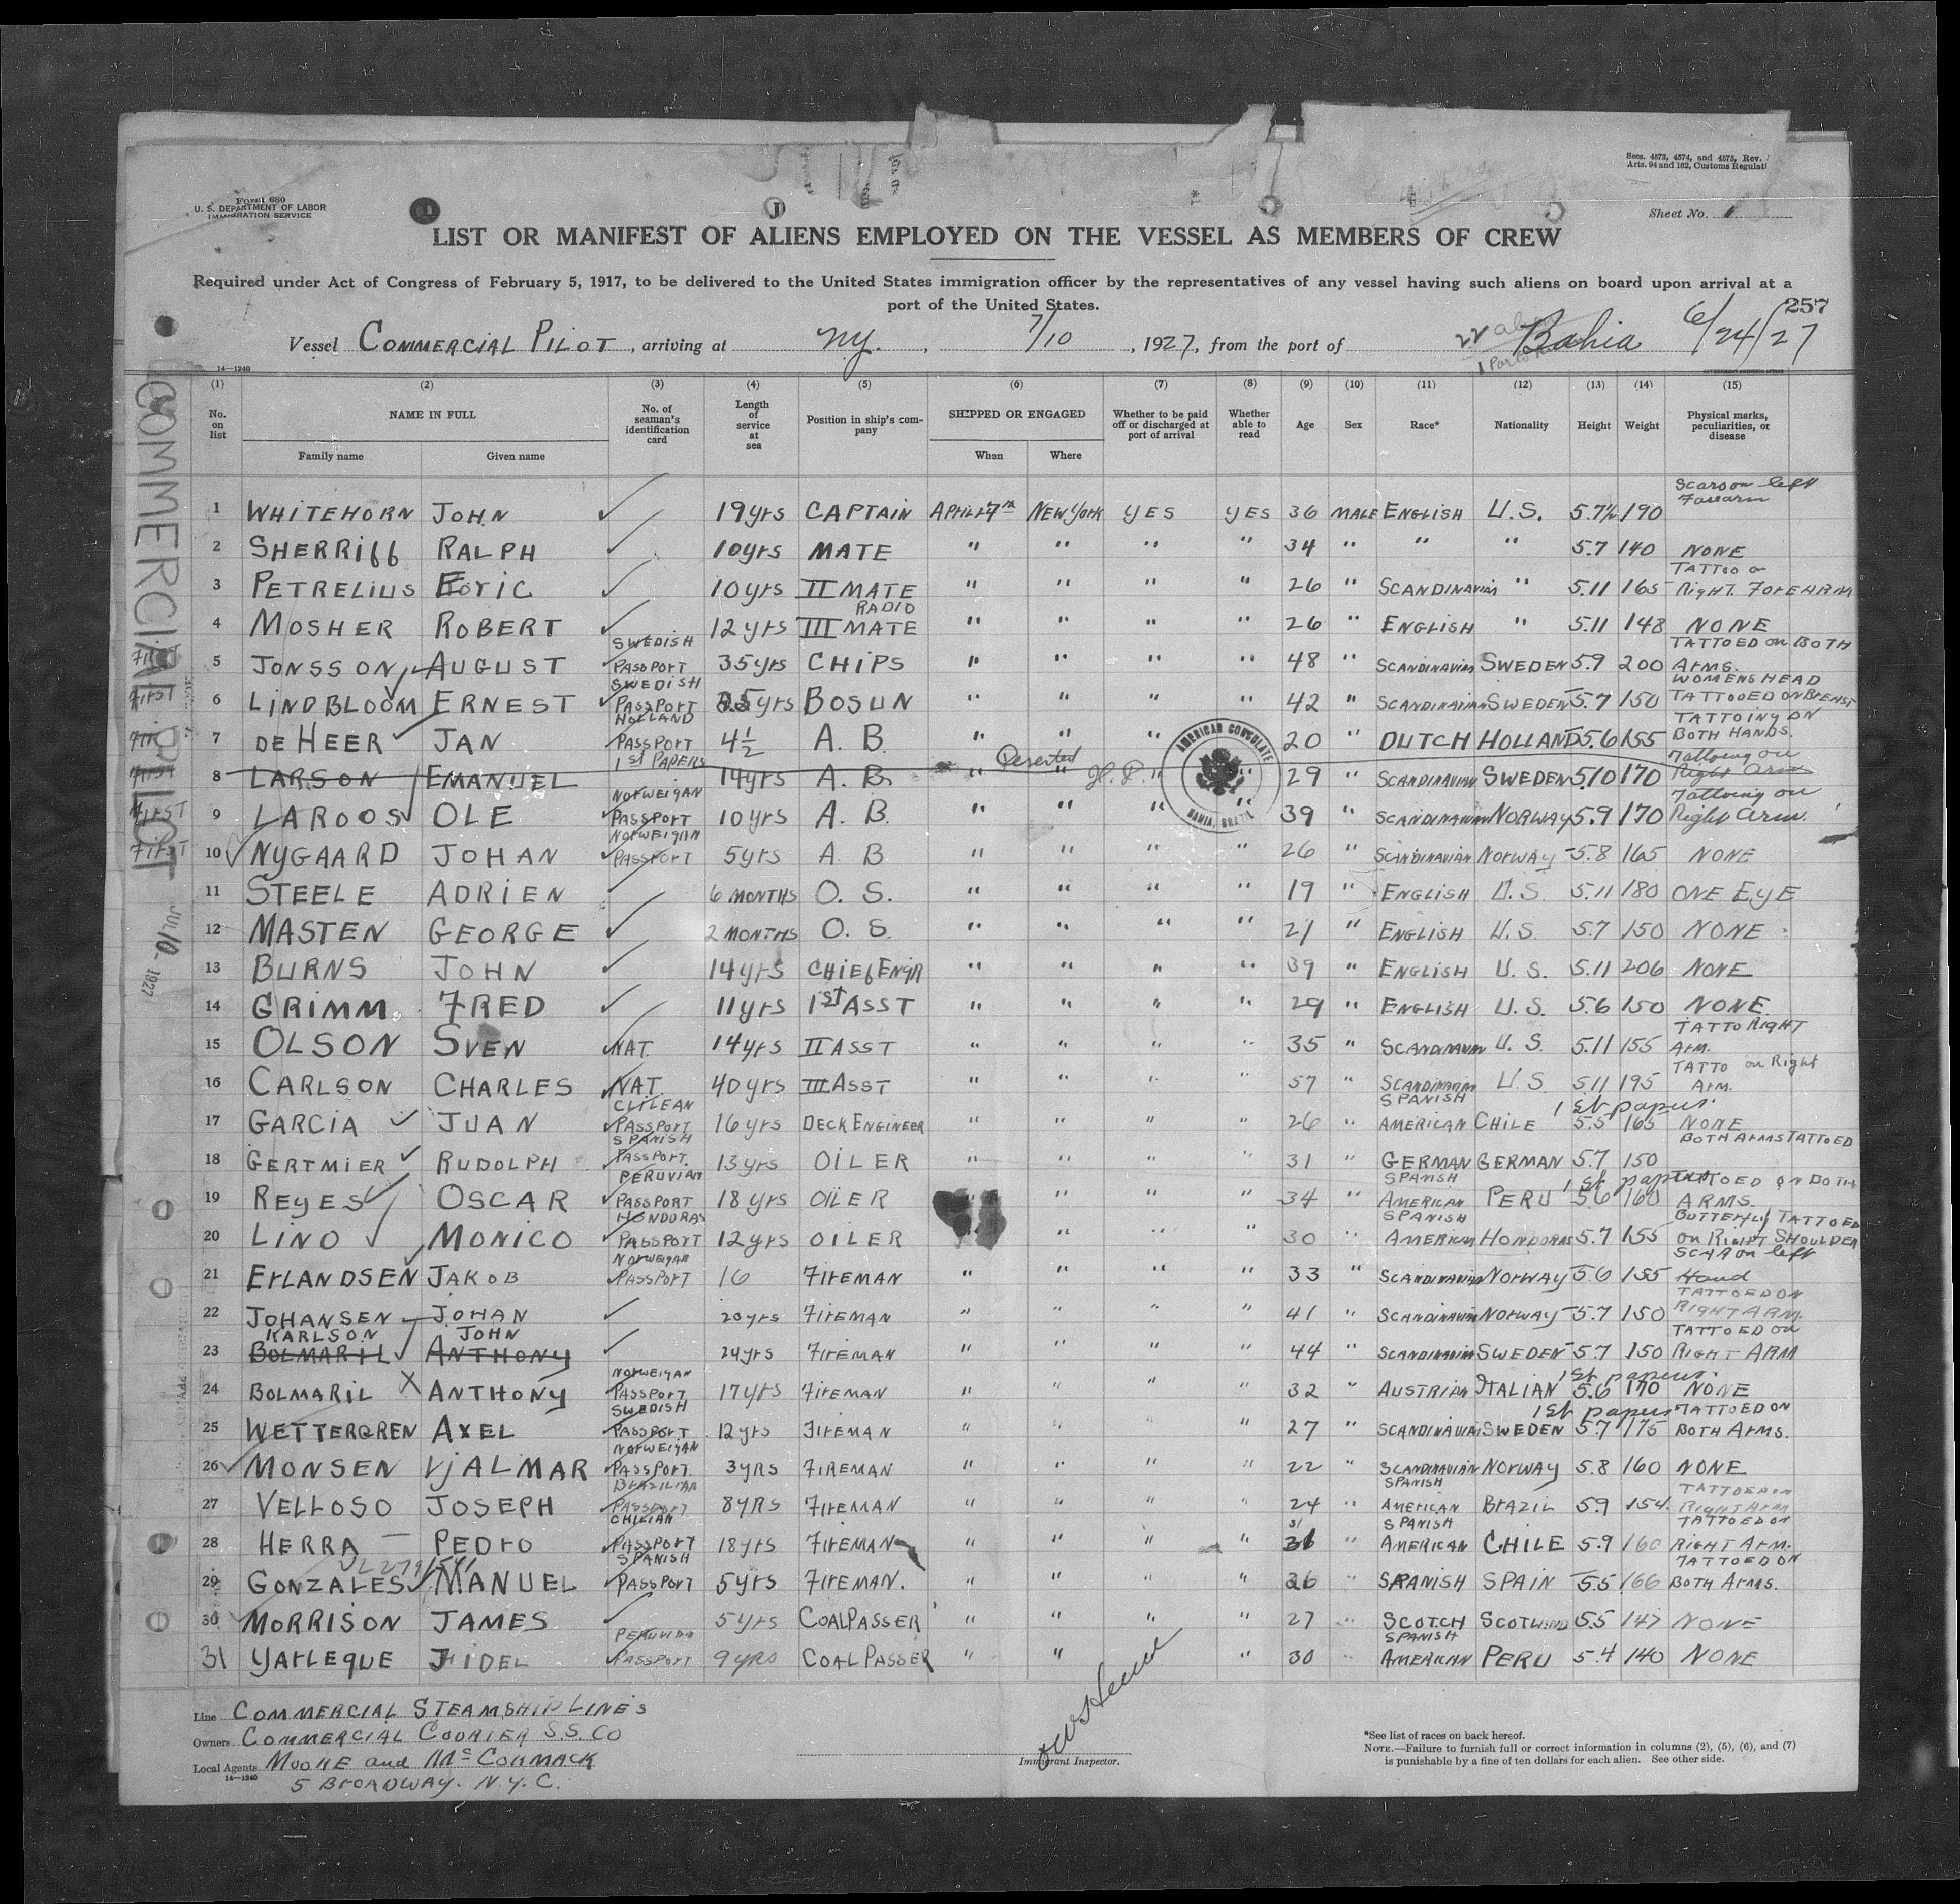 Secs. 4573, 4574, and 4575, Rev.
Arts. 94 and 162, Customs Regulati
Form 680
U. S. DEPARTMENT OF LABOR
IMMIGRATION SERVICE
Sheet No. 1
LIST OR MANIFEST OF ALIENS EMPLOYED ON THE VESSEL AS MEMBERS OF CREW
Required under Act of Congress of February 5, 1917, to be delivered to the United States immigration officer by the representatives of any vessel having such aliens on board upon arrival at a
port of the United States.
257
Vessel COMMERCIAL PILOT, arriving at NY., 7/10, 1927, from the port of Bahia 6/24/27
14—1240
(1) (2) (3) (4) (5) (6) (7) (8) (9) (10) (11) (12) (13) (14) (15)
No. on list NAME IN FULL Family name Given name No. of seaman's identification card Length of service at sea Position in ship's company SHIPPED OR ENGAGED When Where Whether to be paid off or discharged at port of arrival Whether able to read Age Sex Race* Nationality Height Weight Physical marks, peculiarities, or disease
COMMERCIAL PILOT
JUL 10 1927
1 WHITEHORN JOHN 19yrs CAPTAIN APRIL 7th NEW YORK YES YES 36 MALE ENGLISH U.S. 5.7½ 190 Scars on left Forearm
2 SHERRIFF RALPH 10yrs MATE " " " " 34 " " " 5.7 140 NONE
3 PETRELIUS ERIC 10yrs II MATE " " " " 26 " SCANDINAVIAN " 5.11 165 TATTOO on Right FOREARM
4 MOSHER ROBERT 12yrs RADIO III MATE " " " " 26 " ENGLISH " 5.11 148 NONE
First 5 JONSSON AUGUST SWEDISH PASSPORT 35yrs CHIPS " " " " 48 " SCANDINAVIAN SWEDEN 5.9 200 TATTOED on BOTH Arms.
First 6 LINDBLOOM ERNEST SWEDISH PASSPORT 25yrs BOSUN " " " " 42 " SCANDINAVIAN SWEDEN 5.7 150 WOMENS HEAD TATTOOED ON BREAST
7 DE HEER JAN HOLLAND PASSPORT 4½ A. B. " " " " 20 " DUTCH HOLLAND 5.6 155 TATTOING ON BOTH HANDS.
First 8 LARSON EMANUEL 1st PAPERS 14yrs A. B. " Deserted " " 29 " SCANDINAVIAN SWEDEN 5.10 170 Tattooing on Right Arm
AMERICAN CONSULATE
BAHIA, BRAZIL
First 9 LAROOS OLE NORWEIGAN PASSPORT 10yrs A. B. " " " " 39 " SCANDINAVIAN NORWAY 5.9 170 Tattooing on Right Arm.
First 10 NYGAARD JOHAN NORWEIGAN PASSPORT 5yrs A. B " " " " 26 " SCANDINAVIAN NORWAY 5.8 165 NONE
11 STEELE ADRIEN 6 MONTHS O. S. " " " " 19 " ENGLISH U.S. 5.11 180 ONE EYE
12 MASTEN GEORGE 2 MONTHS O. S. " " " " 21 " ENGLISH U.S. 5.7 150 NONE
13 BURNS JOHN 14yrs CHIEF ENGR " " " " 39 " ENGLISH U. S. 5.11 206 NONE
14 GRIMM FRED 11yrs 1st ASST " " " " 29 " ENGLISH U. S. 5.6 150 NONE
15 OLSON SVEN NAT. 14yrs II ASST " " " " 35 " SCANDINAVIAN U. S. 5.11 155 TATTO RIGHT Arm.
16 CARLSON CHARLES NAT. 40yrs III ASST " " " " 57 " SCANDINAVIAN U.S 5.11 195 TATTO on Right Arm.
17 GARCIA JUAN CLILEAN PASSPORT 16yrs DECK ENGINEER " " " " 26 " SPANISH AMERICAN CHILE 1st papers. 5.5 165 NONE
18 GERTMIER RUDOLPH SPANISH PASSPORT. 13yrs OILER " " " " 31 " GERMAN GERMAN 5.7 150 BOTH ARMS TATTOED
19 REYES OSCAR PERUVIAN PASSPORT 18yrs OILER " " " 34 " SPANISH AMERICAN PERU 1st papers 5.6 160 TATTOED ON BOTH ARMS.
20 LINO MONICO HONDORAS PASSPORT 12yrs OILER " " " 30 " SPANISH AMERICAN HONDORAS 5.7 155 BUTTERFLY TATTOED on RIGHT SHOULDER
21 ERLANDSEN JAKOB NORWEIGAN PASSPORT 16 FIREMAN " " " " 33 " SCANDINAVIAN NORWAY 5.6 155 SCAR on left Hand
22 JOHANSEN JOHAN 20yrs FIREMAN " " " " 41 " SCANDINAVIAN NORWAY 5.7 150 TATTOED ON RIGHT ARM.
KARLSON JOHN
23 BOLMARIL ANTHONY 24yrs FIREMAN " " " " 44 " SCANDINAVIAN SWEDEN 5.7 150 TATTOED on RIGHT ARM
24 BOLMARIL X ANTHONY NORWEIGAN PASSPORT 17yrs FIREMAN " " " " 32 " AUSTRIAN ITALIAN 1st papers. 5.6 170 NONE
25 WETTERGREN AXEL SWEDISH PASSPORT 12yrs FIREMAN " " " " 27 " SCANDINAVIAN SWEDEN 1st papers 5.7 175 TATTOED ON BOTH Arms.
26 MONSEN HJALMAR NORWEIGAN PASSPORT. 3YRS FIREMAN " " " " 22 " SCANDINAVIAN NORWAY 5.8 160 NONE
27 VELLOSO JOSEPH BRAZILIAN PASSPORT 8YRS FIREMAN " " " " 24 " SPANISH AMERICAN BRAZIL 5.9 154 TATTOED on Right Arm
28 HERRA PEDRO CHILIAN PASSPORT 18yrs FIREMAN " " " " 31 " SPANISH AMERICAN CHILE 5.9 160 TATTOED ON RIGHT Arm.
29 GONZALES MANUEL SPANISH PASSPORT 5yrs FIREMAN. " " " " 26 " SPANISH SPAIN 5.5 166 TATTOED ON BOTH Arms.
30 MORRISON JAMES 5yrs COALPASSER " " " " 27 " SCOTCH SCOTLAND 5.5 147 NONE
31 YARLEQUE FIDEL PASSPORT 9YRS COAL PASSER " " " 30 " SPANISH AMERICAN PERU 5.4 140 NONE
Line COMMERCIAL STEAMSHIP LINE'S
Owners COMMERCIAL COURIER S.S. CO
Local Agents MOORE and McCORMACK
14—1240
5 BROADWAY. N.Y.C.
Immigrant Inspector.
*See list of races on back hereof.
NOTE.—Failure to furnish full or correct information in columns (2), (5), (6), and (7)
is punishable by a fine of ten dollars for each alien. See other side.